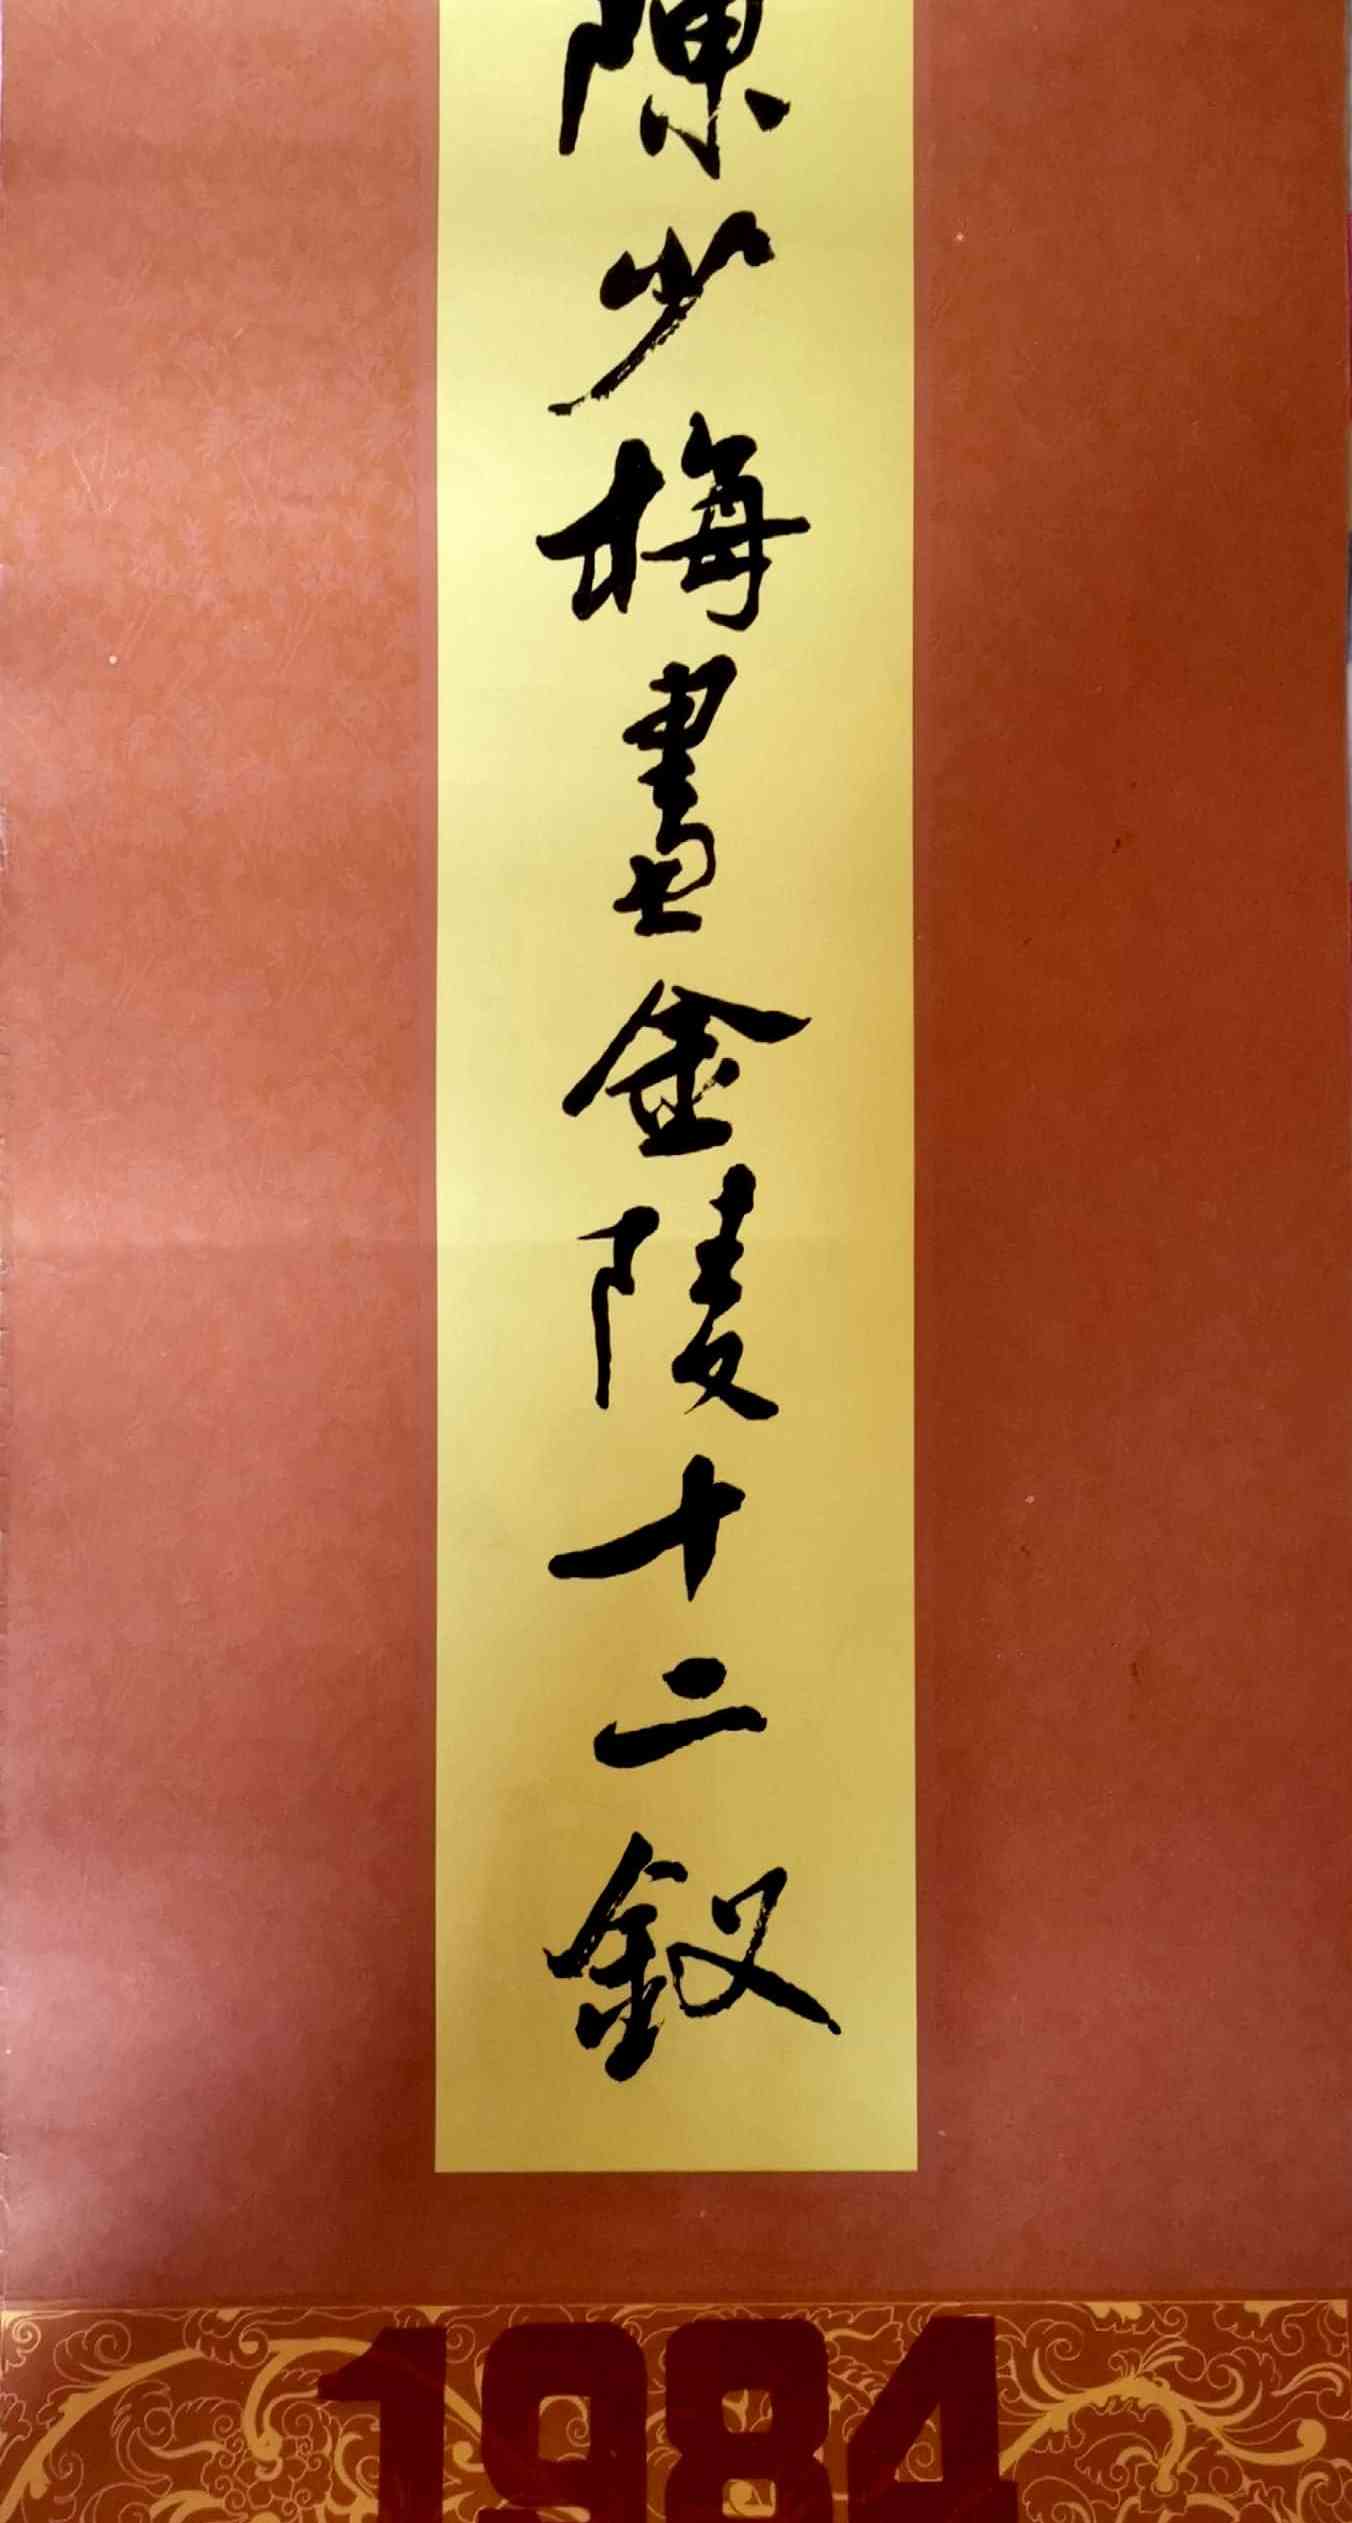 陳少梅畫金陵十二釵
1984